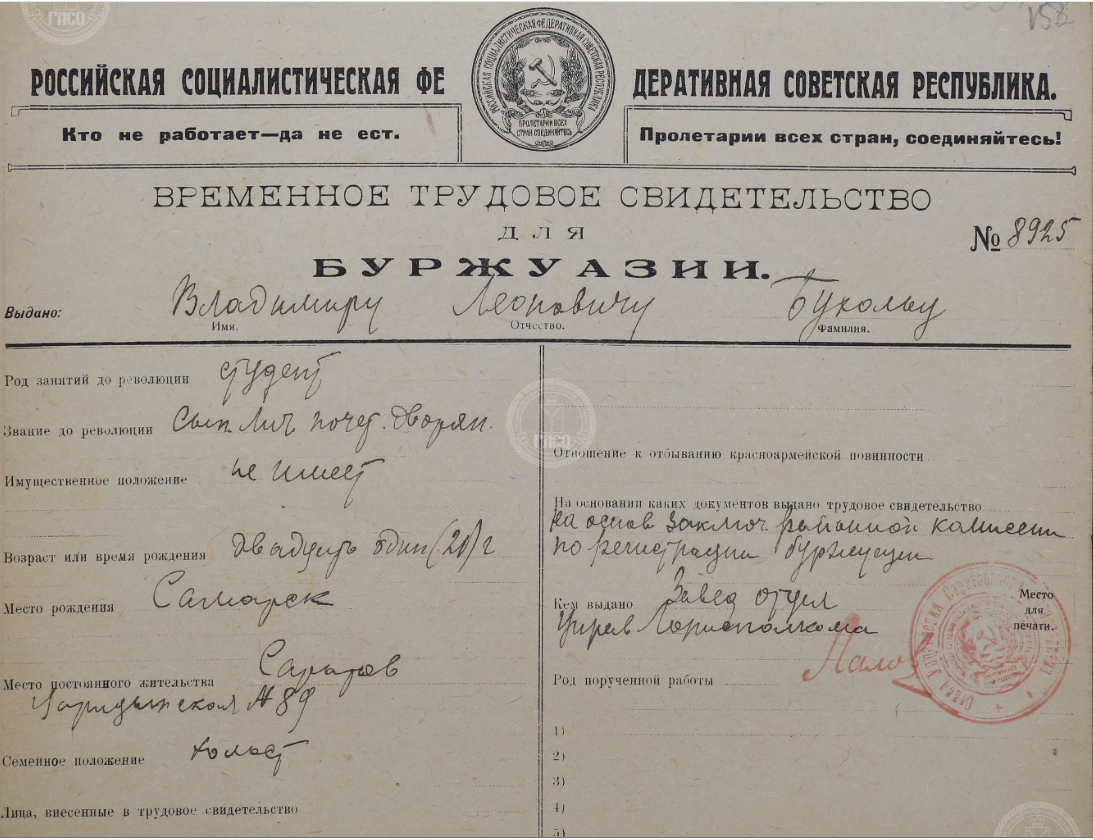 ГАСО
158
РОССИЙСКАЯ СОЦИАЛИСТИЧЕСКАЯ ФЕ ДЕРАТИВНАЯ СОВЕТСКАЯ РЕСПУБЛИКА.
РОССИЙСКАЯ СОЦИАЛИСТИЧЕСКАЯ ФЕДЕРАТИВНАЯ СОВЕТСКАЯ РЕСПУБЛИКА
ПРОЛЕТАРИИ ВСЕХ
СТРАН СОЕДИНЯЙТЕСЬ
Кто не работает—да не ест.
Пролетарии всех стран, соединяйтесь!
ВРЕМЕННОЕ ТРУДОВОЕ СВИДЕТЕЛЬСТВО
ДЛЯ
№ 8925
БУРЖУАЗИИ.
Выдано: Владимиру Леоновичу Бухольц
Имя. Отчество. Фамилия.
Род занятий до революции студент
Звание до революции Сын лич почет. дворян.
Имущественное положение не имеет
Возраст или время рождения двадцать один (21) г
Место рождения Самарск
Место постоянного жительства Саратов
Царицынская № 89
Семейное положение холост
Лица, внесенные в трудовое свидетельство
ГАСО
Отношение к отбыванию красноармейской повинности
На основания каких документов выдано трудовое свидетельство
на основ заключ районной комиссии
по регистрации буржуазии
Кем выдано Завед отдел
Управ Горисполкома
Место
для
печати.
Род порученной работы
1)
2)
3)
4)
5)